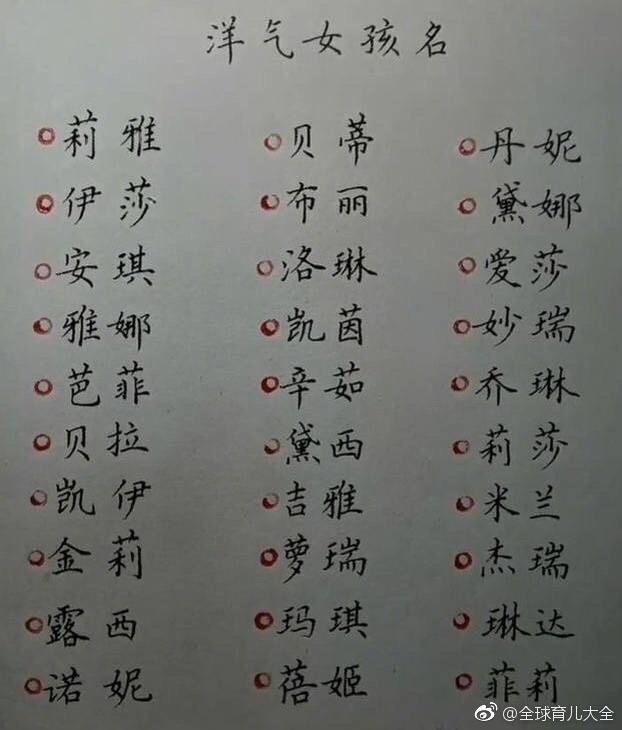 洋气女孩名
莉雅 贝蒂 丹妮
伊莎 布丽 黛娜
安琪 洛琳 爱莎
雅娜 凯茵 妙瑞
芭菲 辛茹 乔琳
贝拉 黛西 莉莎
凯伊 吉雅 米兰
金莉 萝瑞 杰瑞
露西 玛琪 琳达
诺妮 蓓姬 菲莉
@全球育儿大全